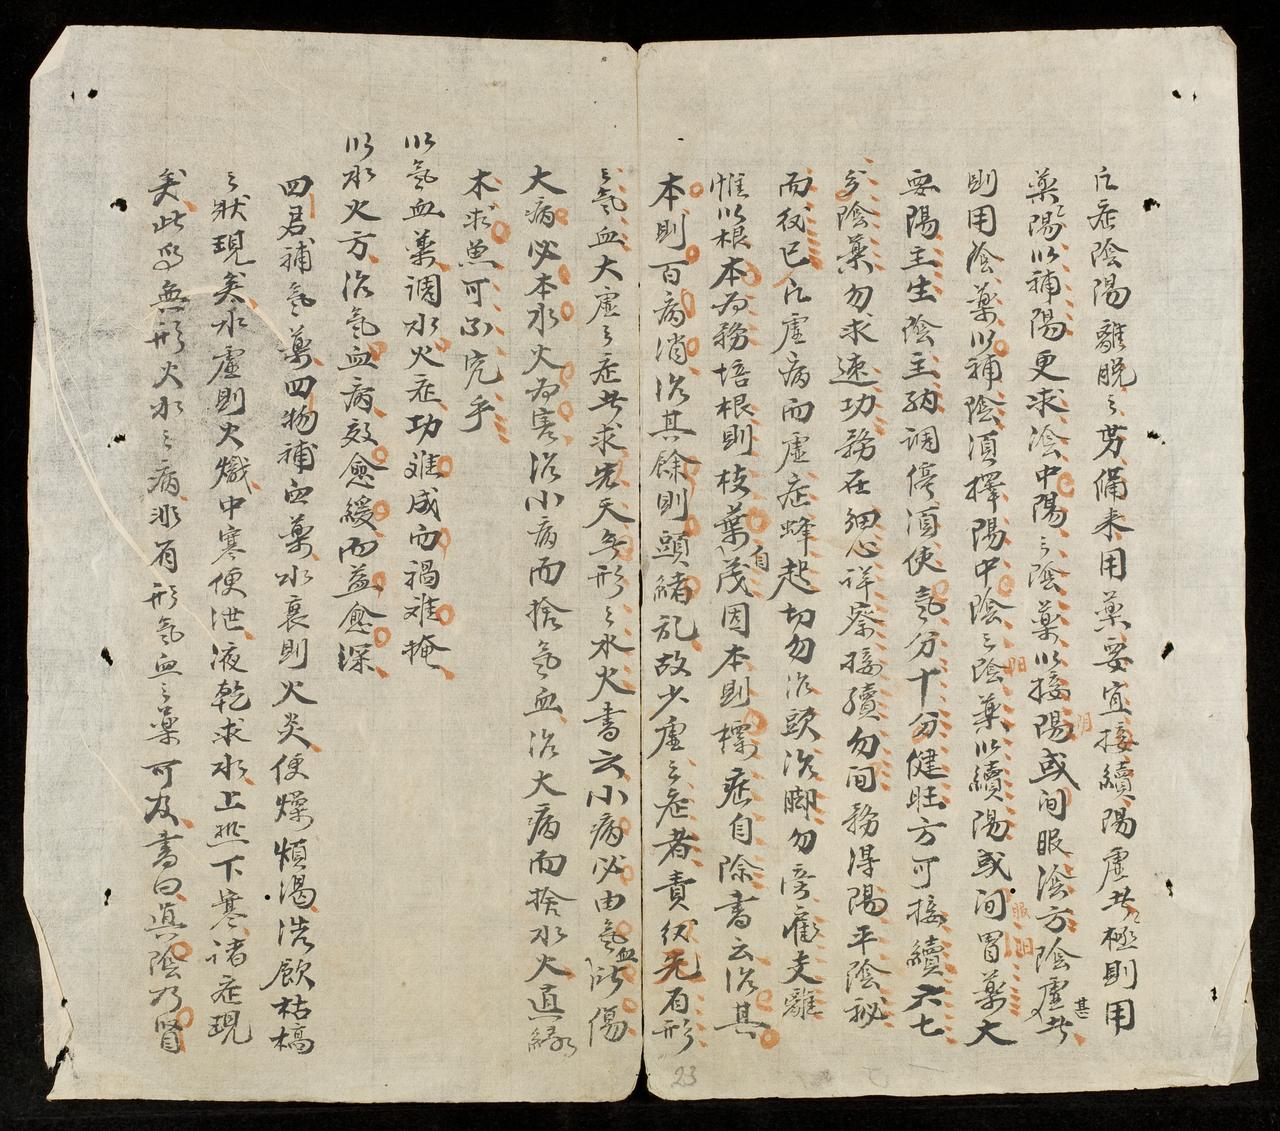 凡症陰陽離脫之勇備未用藥要宜接續陽虛甚極則用
藥陽以補陽更求陰中陽之陰藥以接陽或间服陰方陰虛甚
則用陰藥以補陰須擇陽中陰之陰藥以續陽或间胃藥大
要陽主生陰主納調停須使氣分十分健旺方可接續六七
分陰藥勿求速功務在細心祥察接續勿间務得陽平陰秘
而後已凡虛病而虛症蜂起切勿治頭治脚勿旁雇支離
惟以根本为務培根則枝葉自茂因本則標症自除書云治其
本則百病消治其餘則頭緒乱故少虛之症者責後天有形
之氣血大虛之症者求先天無形之水火書云小病必由氣血所傷
大病必本水火为害治小病而捨氣血治大病而捨水火道緣
本求魚可不究乎
以氣血藥調水火症功难成而禍难掩
以水火方治氣血病效愈緩而益愈深
四君補氣藥四物補血藥水衰則火炎便燥煩渴浩飲枯槁
之狀現矣水虛則火熾中寒便泄液乾求水上熱下寒诸症現
矣此为無形火水之病非有形氣血之藥可及書曰真陰乃腎
23